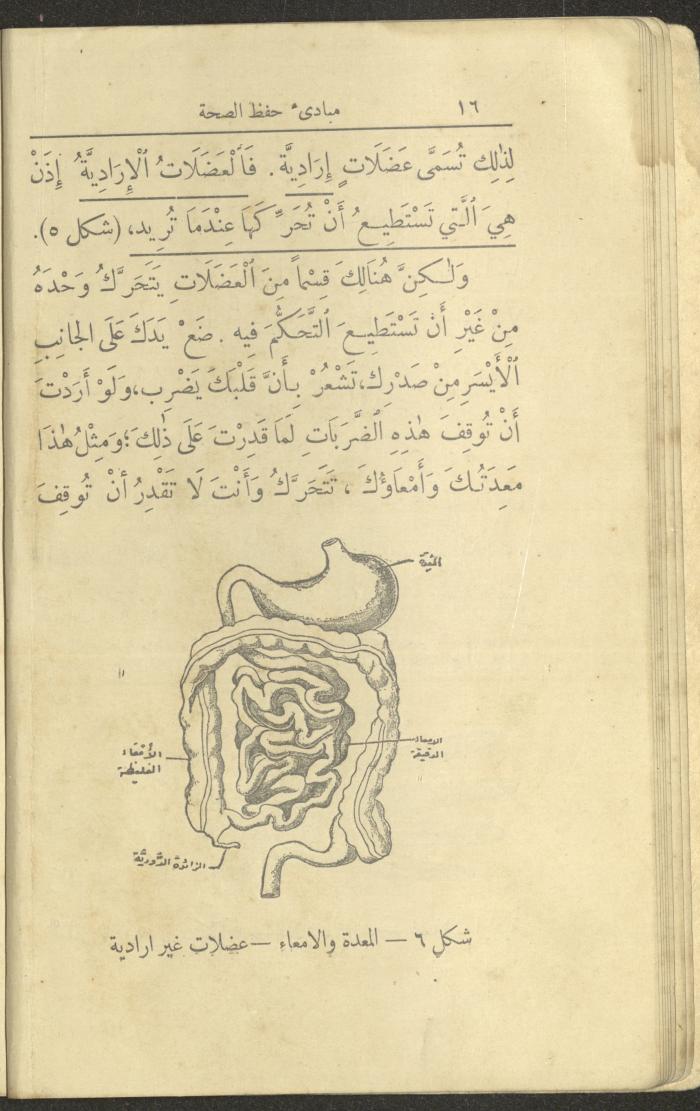 ١٦ مبادىء حفظ الصحة
لِذٰلِكَ تُسَمَّى عَضَلَاتٍ إِرَادِيَّة. فَٱلْعَضَلَاتُ ٱلْإِرَادِيَّةُ إِذَنْ
هِيَ ٱلَّتِي تَسْتَطِيعُ أَنْ تُحَرِّكَهَا عِنْدَمَا تُرِيد، (شكل ٥).
وَلٰكِنَّ هُنَالِكَ قِسْماً مِنَ ٱلْعَضَلَاتِ يَتَحَرَّكُ وَحْدَهُ
مِنْ غَيْرِ أَنْ تَسْتَطِيعَ ٱلتَّحَكُّمَ فِيه. ضَعْ يَدَكَ عَلَى الجانِبِ
ٱلْأَيْسَرِ مِنْ صَدْرِك، تَشْعُرْ بِأَنَّ قَلْبَكَ يَضْرِب، وَلَوْ أَرَدْتَ
أَنْ تُوقِفَ هٰذِهِ ٱلضَّرَبَاتِ لَمَا قَدِرْتَ عَلَى ذٰلِكَ؛ وَمِثْلُ هٰذَا
مَعِدَتُكَ وَأَمْعَاؤُكَ، تَتَحَرَّكُ وَأَنْتَ لَا تَقْدِرُ أَنْ تُوقِفَ
الامعاء
الدقيقة
الأَمْعَاء
الغليظة
الزائدة الدَّوديَّة
شكل ٦ — المعدة والامعاء — عضلات غير ارادية